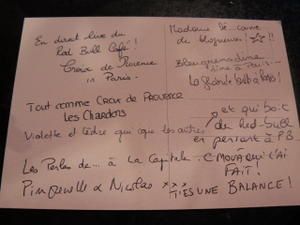 En direct live du
Red Bull Café !
Croix de Provence
in Paris.
Madame Dé...conne
de blogueuses ! ☆!!
à Paris
La grande bulle à bosses !
Tout comme Croix de PROVENCE
les Chardons
Violette et Cèdre qui que les autres,
et qui boit
du Red-bull
en pensant à PB
Les Perles de... à la Capitale.
C MOVÀ qui t'ai
FAIT !
Pimprenelle & Nicolas xxx
T'ES UNE BALANCE !